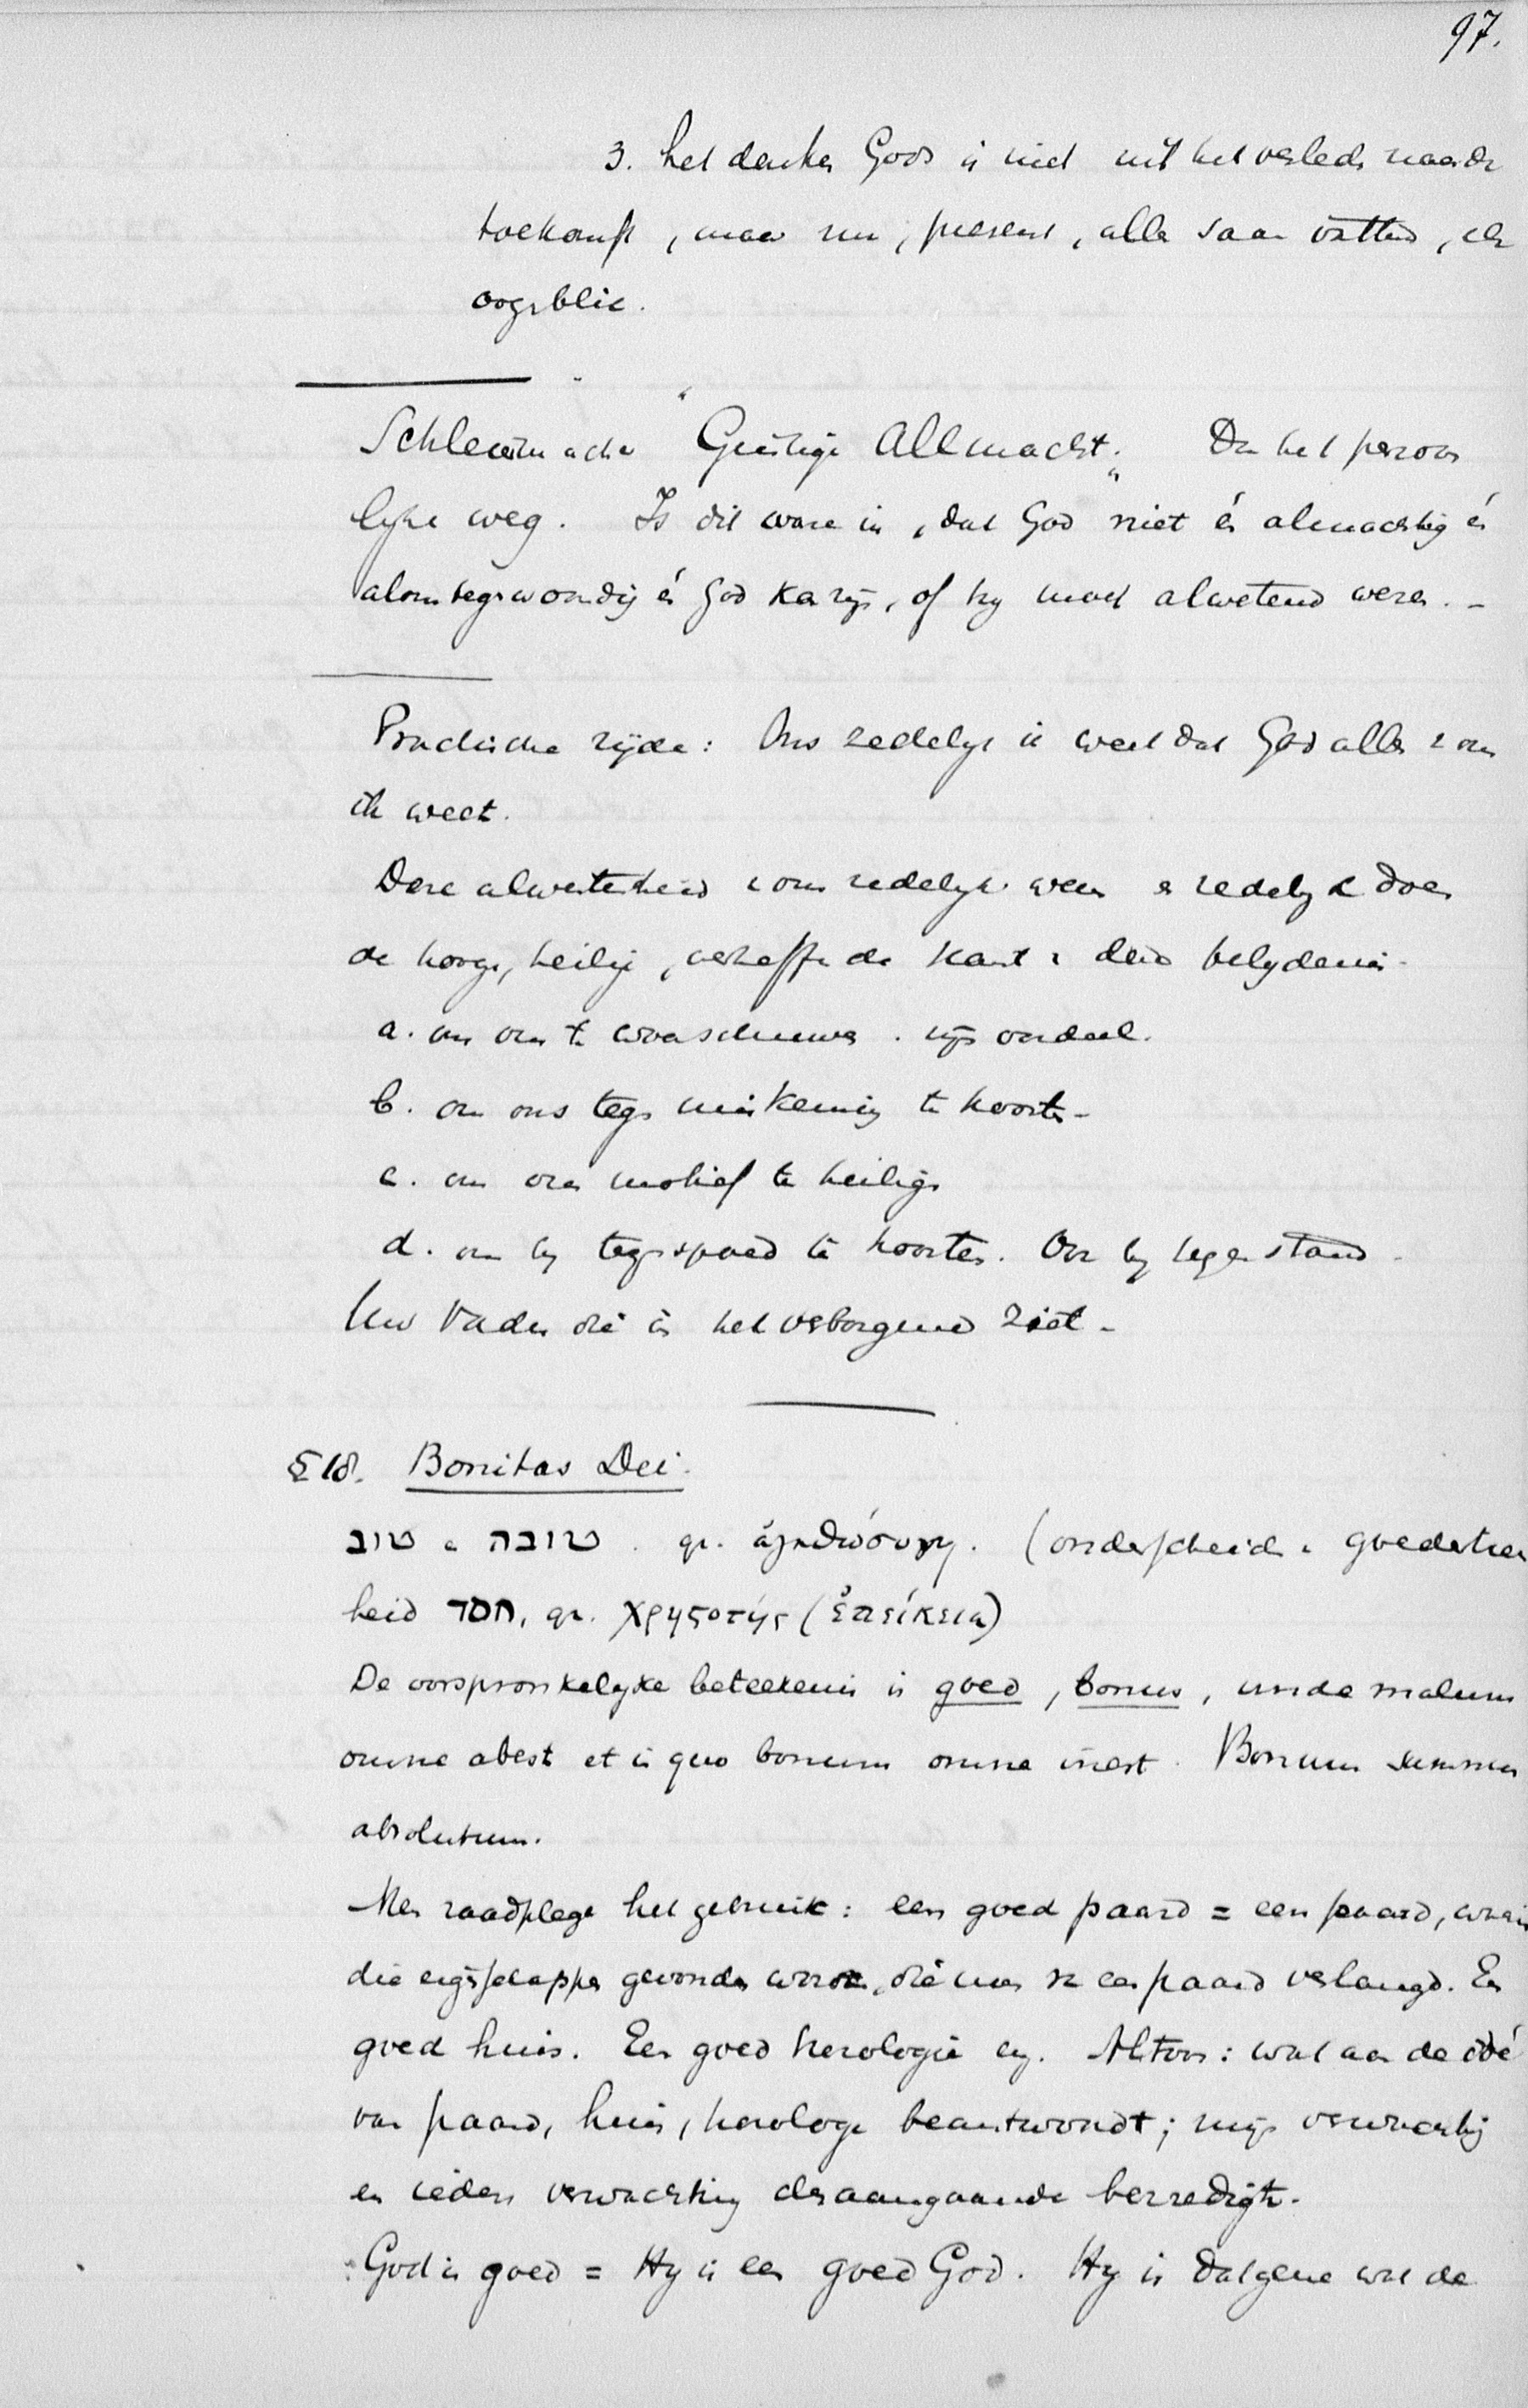 97.
3. het denken Gods is niet uit het verleden naar de
toekomst, maar nu, present, alles saam vattend, één
oogenblik.
Schleiermacher „Geistige Allmacht". Dan het persoon
lijke weg. Is dit ware in, dat God niet én almachtig én
alomtegenwoordig én God kan zijn, of hij moet alwetend wezen. -
Practische zijde: Ons zedelijk is weet dat God alles van
ik weet.
Deze alwetendheid van zedelijk wezen en zedelijk doen
de hooge, heilige, verheffende kant van deze belijdenis.
a. om ons te waarschuwen. zijn oordeel.
b. om ons tegen miskenning te troosten -
c. om ons motief te heiligen
d. om bij tegenspoed te troosten. Ook bij tegenstand.
Uw Vader die in het verborgene ziet -
§ 18. Bonitas Dei.
טוב en טובה. gr. ἀγαθωσύνη. (onderscheiden van goedertieren
heid חסד, gr. χρηστοτής (ἐπιείκεια)
De oorspronkelijke beteekenis is goed, bonus, unde malum
omne abest et in quo bonum omne inest. Bonum summum
absolutum.
Men raadplege het gebruik: een goed paard = een paard, waarin
die eigenschappen gevonden worden, die men van een paard verlangd. Een
goed huis. Een goed horologie enz. Altoos: wat aan de idé
van paard, huis, horologe beantwoordt; mijn verwachting
en ieders verwachting desaangaande bevredigt.
God is goed = Hij is een goed God. Hij is datgene wat de